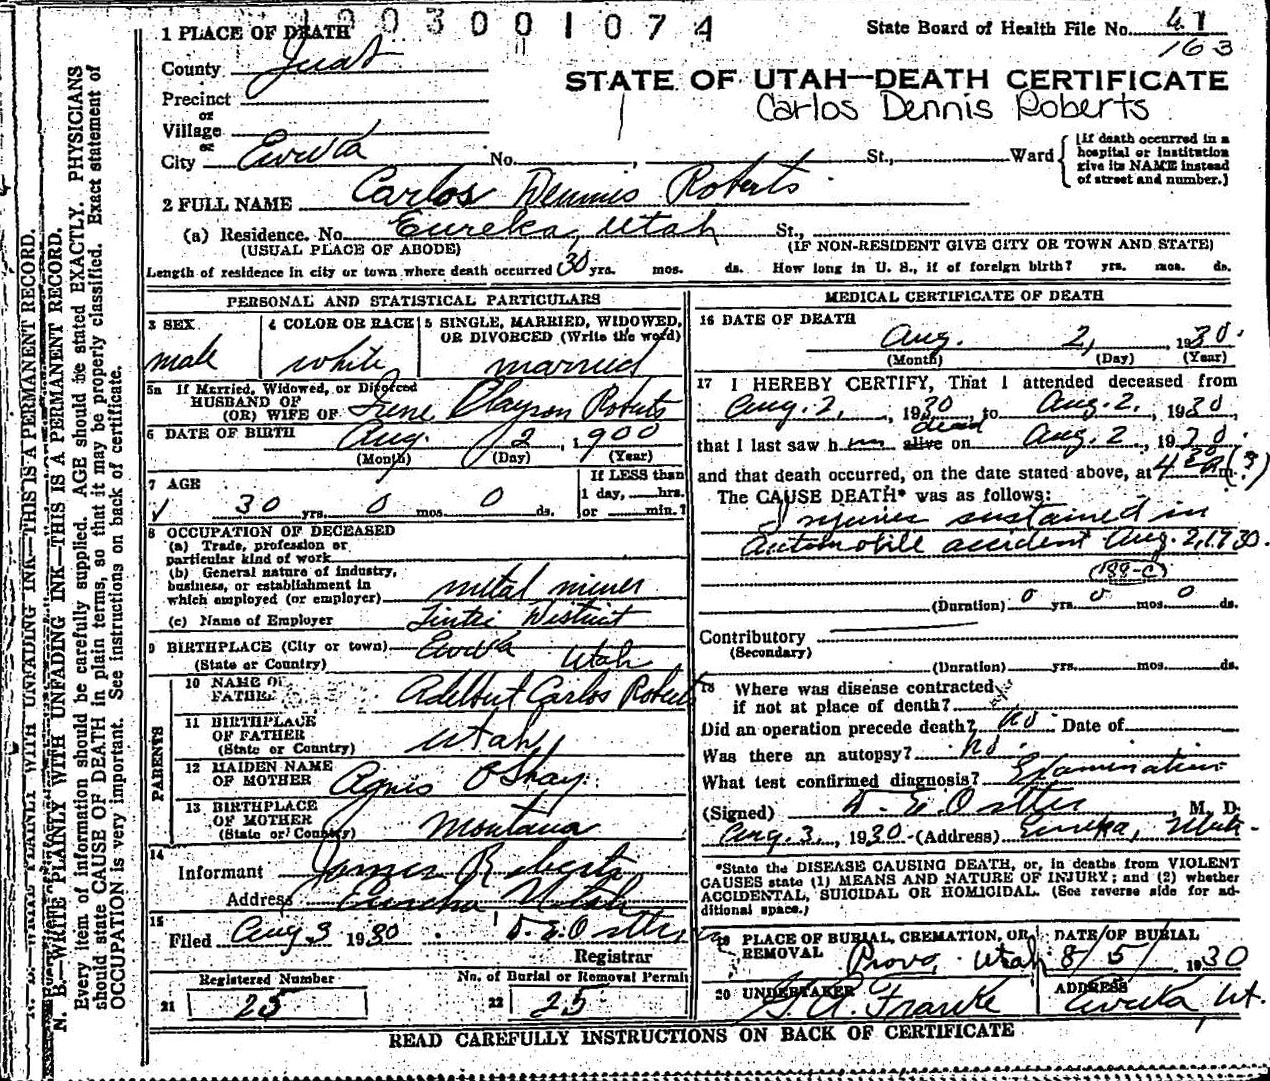 1003001074
State Board of Health File No. 41
163
1 PLACE OF DEATH
County Juab
STATE OF UTAH—DEATH CERTIFICATE
Carlos Dennis Roberts
Precinct
or
Village
or
City Eureka No. , St., Ward
(If death occurred in a hospital or institution give its NAME instead of street and number.)
2 FULL NAME Carlos Dennis Roberts
(a) Residence. No. Eureka, Utah St.,
(USUAL PLACE OF ABODE) (IF NON-RESIDENT GIVE CITY OR TOWN AND STATE)
Length of residence in city or town where death occurred 30 yrs. mos. ds. How long in U. S., if of foreign birth? yrs. mos. ds.
PERSONAL AND STATISTICAL PARTICULARS
3 SEX male
4 COLOR OR RACE white
5 SINGLE, MARRIED, WIDOWED, OR DIVORCED (Write the word) married
5a If Married, Widowed, or Divorced
HUSBAND OF
(OR) WIFE OF Irene Clayson Roberts
6 DATE OF BIRTH Aug. 2, 1900
(Month) (Day) (Year)
7 AGE
30 yrs. 0 mos. 0 ds.
If LESS than
1 day, hrs.
or min.?
8 OCCUPATION OF DECEASED
(a) Trade, profession or
particular kind of work
(b) General nature of industry,
business, or establishment in
which employed (or employer) metal miner
(c) Name of Employer Tintic District
9 BIRTHPLACE (City or town) Eureka
(State or Country) Utah
PARENTS
10 NAME OF
FATHER Adelbert Carlos Roberts
11 BIRTHPLACE
OF FATHER
(State or Country) Utah
12 MAIDEN NAME
OF MOTHER Agnes O'Shay
13 BIRTHPLACE
OF MOTHER
(State or Country) Montana
14
Informant James Roberts
Address Eureka Utah
15
Filed Aug 3 1930
Registrar
Registered Number
21 25
No. of Burial or Removal Permit
22 25
MEDICAL CERTIFICATE OF DEATH
16 DATE OF DEATH
Aug. 2, 1930.
(Month) (Day) (Year)
17 I HEREBY CERTIFY, That I attended deceased from
Aug. 2, 1930, to Aug. 2, 1930,
dead
that I last saw him alive on Aug. 2, 1930.
and that death occurred, on the date stated above, at 4 30 a m. (?)
The CAUSE DEATH* was as follows:
Injuries sustained in
automobile accident Aug. 2, 1930.
(188-C)
(Duration) 0 yrs. 0 mos. 0 ds.
Contributory
(Secondary)
(Duration) yrs. mos. ds.
18 Where was disease contracted
if not at place of death?
Did an operation precede death? no. Date of
Was there an autopsy? no.
What test confirmed diagnosis? Examination
(Signed) M. D.
Aug. 3, 1930. (Address) Eureka, Utah.
*State the DISEASE CAUSING DEATH, or, in deaths from VIOLENT
CAUSES state (1) MEANS AND NATURE OF INJURY; and (2) whether
ACCIDENTAL, SUICIDAL OR HOMICIDAL. (See reverse side for ad-
ditional space.)
19 PLACE OF BURIAL, CREMATION, OR
REMOVAL Provo, Utah
DATE OF BURIAL
8/5/1930
20 UNDERTAKER
ADDRESS
Eureka, Ut.
READ CAREFULLY INSTRUCTIONS ON BACK OF CERTIFICATE
N. B.—WRITE PLAINLY WITH UNFADING INK—THIS IS A PERMANENT RECORD.
N. B.—WRITE PLAINLY WITH UNFADING INK—THIS IS A PERMANENT RECORD.
Every item of information should be carefully supplied. AGE should be stated EXACTLY. PHYSICIANS
should state CAUSE OF DEATH in plain terms, so that it may be properly classified. Exact statement of
OCCUPATION is very important. See instructions on back of certificate.